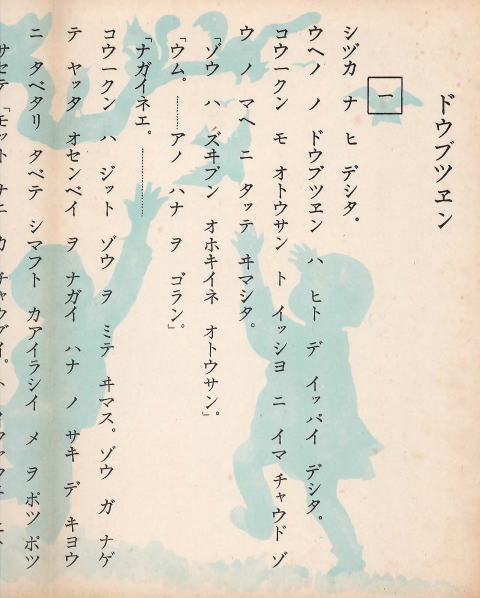 ドウブツヱン
一
シヅカ ナ ヒ デシタ。
ウヘノ ノ ドウブツヱン ハ ヒト デ イッパイ デシタ。
コウークン モ オトウサン ト イッショ ニ イマ チャウド ゾ
ウ ノ マヘ ニ タッテ ヰマシタ。
「ゾウ ハ ズヰブン オホキイネ オトウサン」。
「ウム。………アノ ハナ ヲ ゴラン」。
「ナガイネエ。……………
コウークン ハ ジット ゾウ ヲ ミテ ヰマス。ゾウ ガ ナゲ
テ ヤッタ オセンベイ ヲ ナガイ ハナ ノ サキ デ キヨウ
ニ タベタリ タベテ シマフト カアイラシイ メ ヲ ポツ ポツ
サセテ 「モット